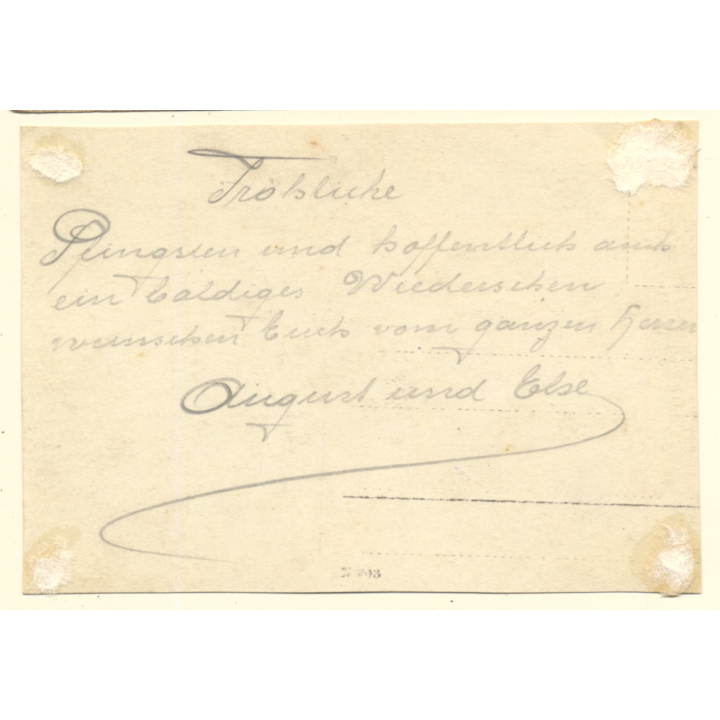 Fröhliche
Pfingsten und hoffentlich auch
ein baldiges Wiedersehen
wünschen Euch vom ganzen Herzen
August und Else